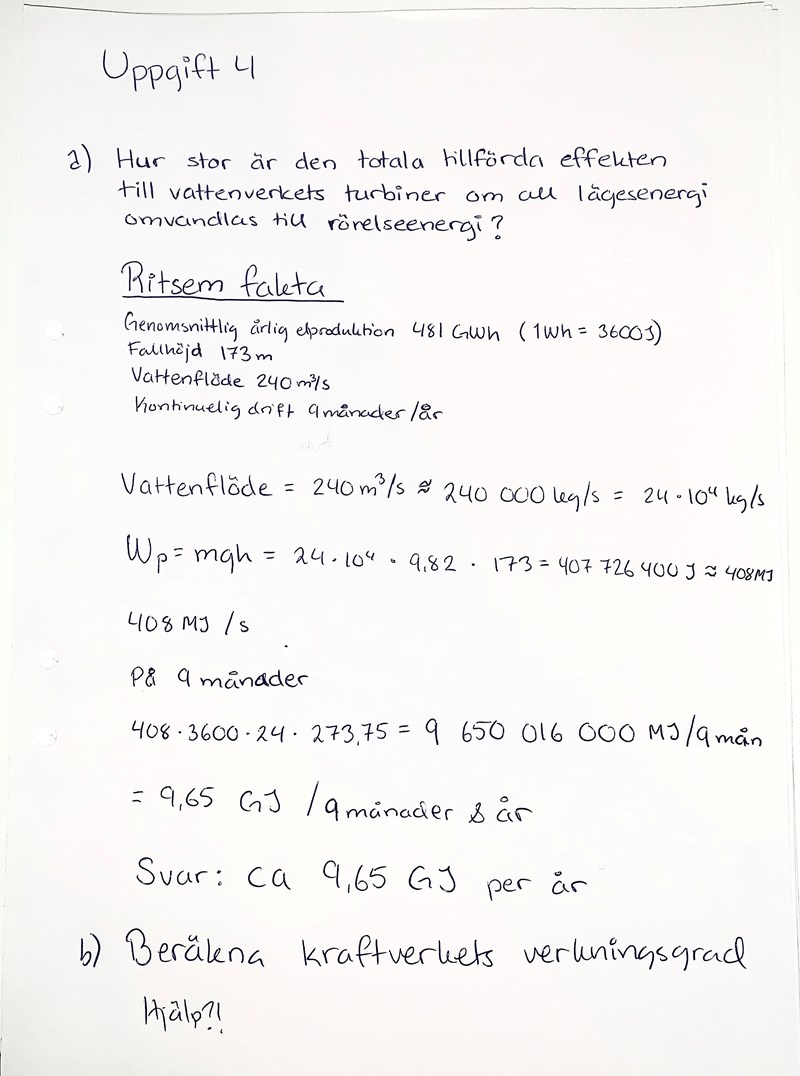 Uppgift 4
a) Hur stor är den totala tillförda effekten
till vattenverkets turbiner om all lägesenergi
omvandlas till rörelseenergi?
Ritsem fakta
Genomsnittlig årlig elproduktion 481 GWh (1Wh = 3600J)
Fallhöjd 173 m
Vattenflöde 240 m³/s
Kontinuelig drift 9 månader/år
Vattenflöde = 240 m³/s ≈ 240 000 kg/s = 24 · 10⁴ kg/s
Wp = mgh = 24 · 10⁴ · 9,82 · 173 = 407 726 400 J ≈ 408 MJ
408 MJ /s
På 9 månader
408 · 3600 · 24 · 273,75 = 9 650 016 000 MJ/9 mån
= 9,65 GJ /9 månader & år
Svar: ca 9,65 GJ per år
b) Beräkna kraftverkets verkningsgrad
Hjälp?!